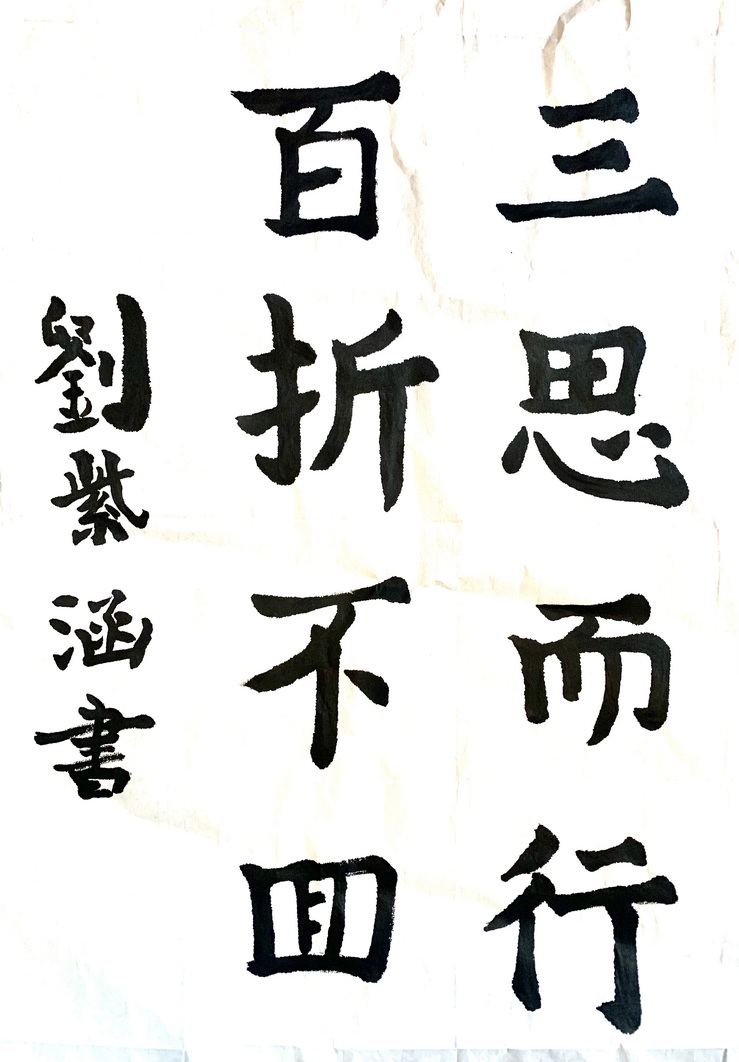 三思而行
百折不回
劉紫涵書